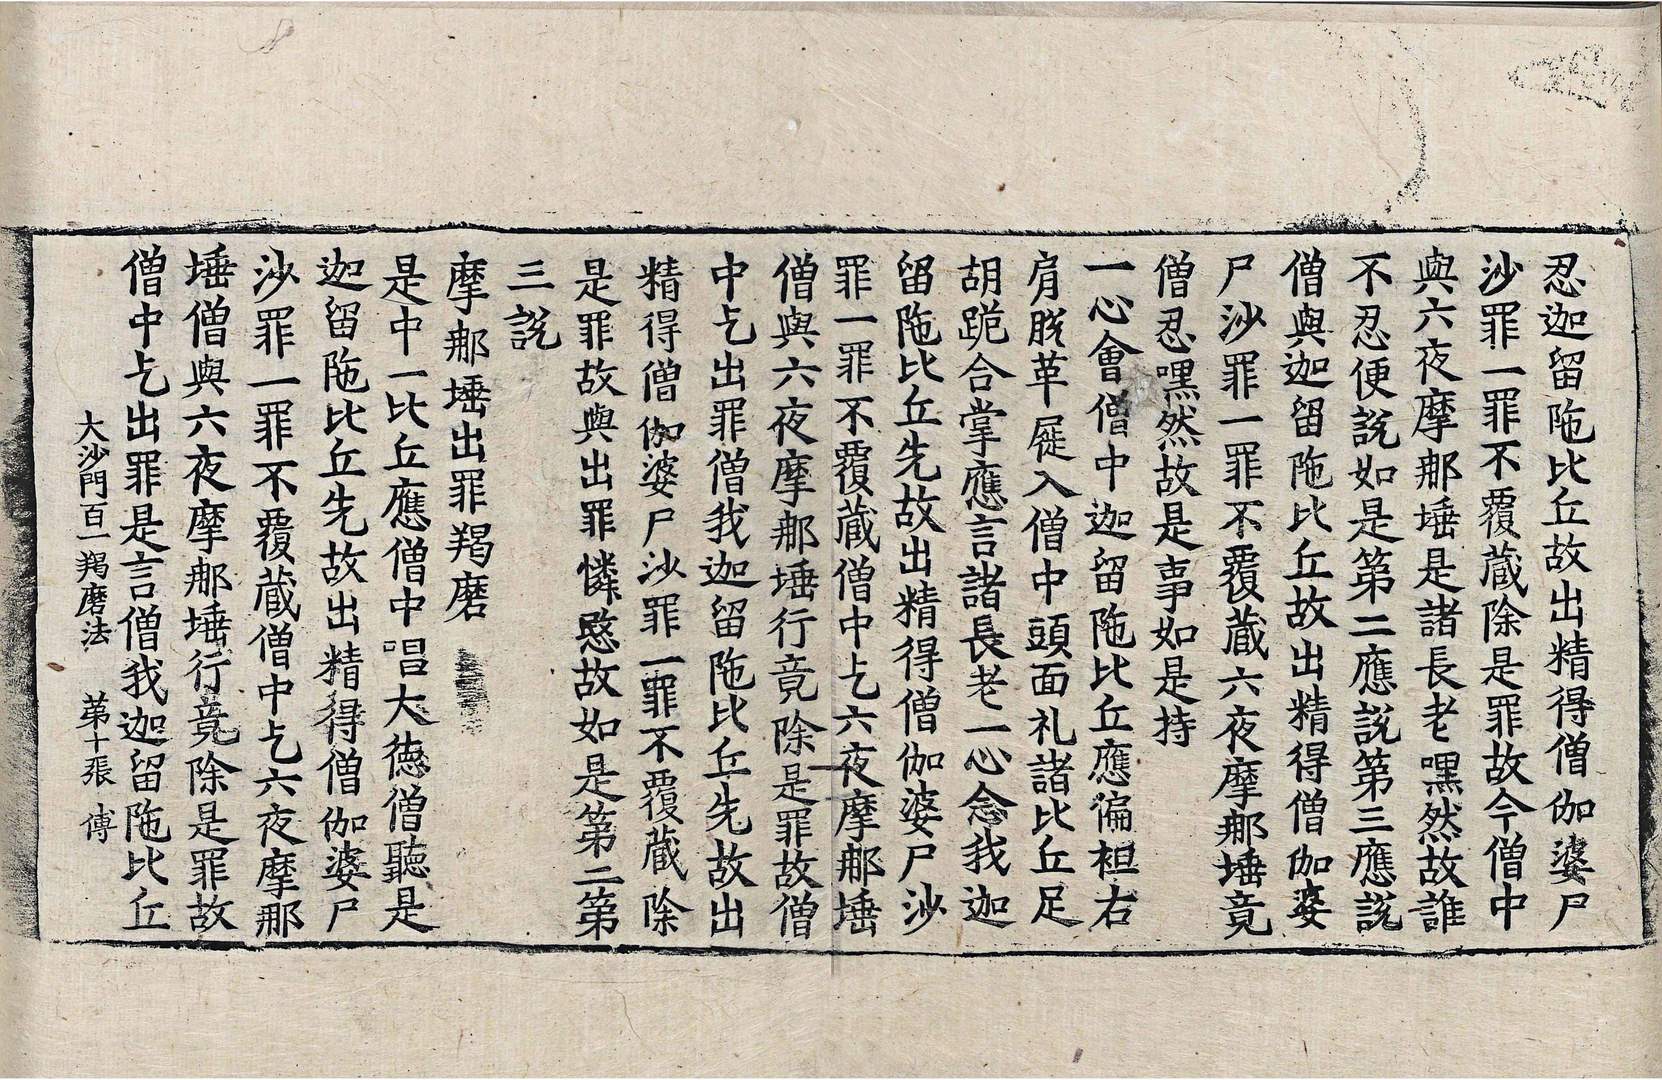 忍迦留陁比丘故出精得僧伽婆尸
沙罪一罪不覆蔵除是罪故今僧中
與六夜摩那埵是諸長老嘿然故誰
不忍便說如是第二應說第三應說
僧與迦留陁比丘故出精得僧伽婆
尸沙罪一罪不覆蔵六夜摩那埵竟
僧忍嘿然故是事如是持
一心會僧中迦留陁比丘應徧袒右
肩脫革屣入僧中頭面礼諸比丘足
胡跪合掌應言諸長老一心念我迦
留陁比丘先故出精得僧伽婆尸沙
罪一罪不覆蔵僧中乞六夜摩那埵
僧與六夜摩那埵行竟除是罪故僧
中乞出罪僧我迦留陁比丘先故出
精得僧伽婆尸沙罪一罪不覆蔵除
是罪故與出罪憐愍故如是第二第
三說
摩那埵出罪羯磨
是中一比丘應僧中唱大德僧聽是
迦留陁比丘先故出精得僧伽婆尸
沙罪一罪不覆蔵僧中乞六夜摩那
埵僧與六夜摩那埵行竟除是罪故
僧中乞出罪是言僧我迦留陁比丘
大沙門百一羯磨法 苐十張 傅